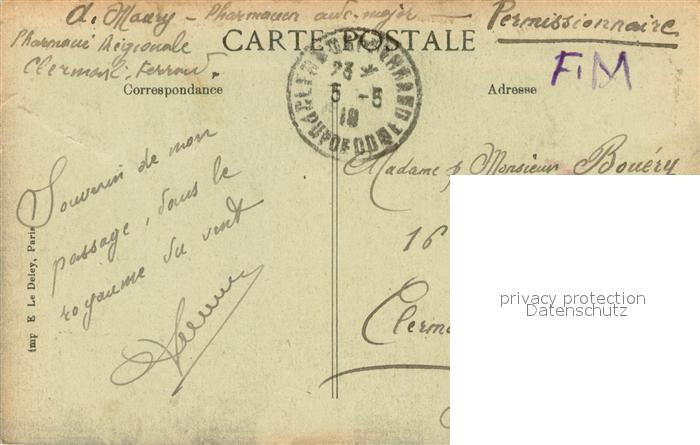 A. Maury – Pharmacien aide-major — Permissionnaire
Pharmacie Régionale
Clermont-Ferrand.
CARTE POSTALE
F.M
Correspondance
Adresse
CLERMONT-FERRAND
23 *
5 -5
18
PUY DE DOME
Souvenir de mon
passage, dans le
royaume du vent
Madame & Monsieur Bouéry
16
Clerm
imp E Le Deley, Paris
privacy protection
Datenschutz